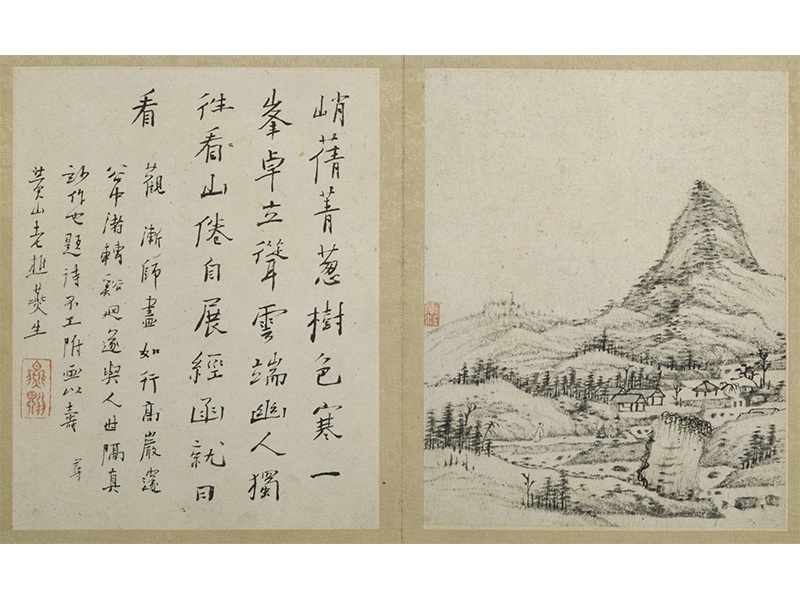 峭蒨菁葱樹色寒一
峯卓立聳雲端幽人獨
往看山倦自展經函就日
看
觀漸師畫如行高巖邃
谷中渚轉谿迴遂與人世隔真
妙作也題詩不工附
黃山老樵
生